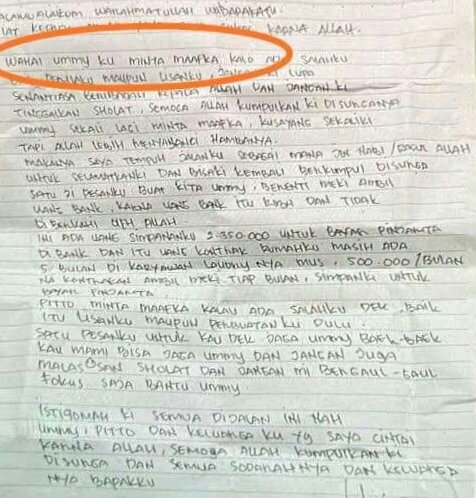 WARAHMATULLAH WABARAKATU.
KARNA ALLAH.
WAHAI UMMY KU MINTA MAAFKA, KALO ADA SALAHKU
MAUPUN LISANKU, JANGAN KI LUPA
SENANTIASA ALLAH DAN JANGAN KI
TINGGALKAN SHOLAT, SEMOGA ALLAH KUMPULKAN KI DISURGANYA
UMMY SEKALI LAGI MINTA MAAFKA, KUSAYANG SEKALIKI
TAPI ALLAH LEBIH MENYAYANGI HAMBANYA.
MAKANYA SAYA TEMPUH JALANKU SEBAGAI MANA JLN NABI/RASUL ALLAH
UNTUK SELAMATKANKI DAN BISAKI KEMBALI BERKUMPUL DISURGA
SATU JI PESANKU BUAT KITA UMMY, BERENTI MEKI AMBIL
UANG BANK, KARNA UANG BANK ITU RIBAH DAN TIDAK
DIBERKAHI OLEH ALLAH.
INI ADA UANG SIMPANANKU 2.350.000 UNTUK BAYAR PINJAMTA
DI BANK DAN ITU UANG KONTRAK RUMAHKU MASIH ADA
5 BULAN DI KARYAWAN LAUNDRY NYA MUS, 500.000/BULAN
NA KONTRAKAN AMBIL MEKI TIAP BULAN, SIMPANKI UNTUK
BAYAR PINJAMTA.
PITTO MINTA MAAFKA KALAU ADA SALAHKU DEK, BAIK
ITU LISANKU MAUPUN PERBUATANKU DULU.
SATU PESANKU UNTUK KAU DEK JAGA UMMY BAEK-BAEK
KAU MAMI BISA JAGA UMMY DAN JANGAN JUGA
MALAS SHOLAT DAN JANGAN MI BERGAUL-GAUL
FOKUS SAJA BANTU UMMY.
ISTIQOMAH KI SEMUA DIJALAN INI NAH
UMMY, PITTO DAN KELUARGA KU YG SAYA CINTAI
KARNA ALLAH, SEMOGA ALLAH KUMPULKAN KI
DISURGA DAN SEMUA SODARAHNYA DAN KELUARGA
NYA BAPAKKU